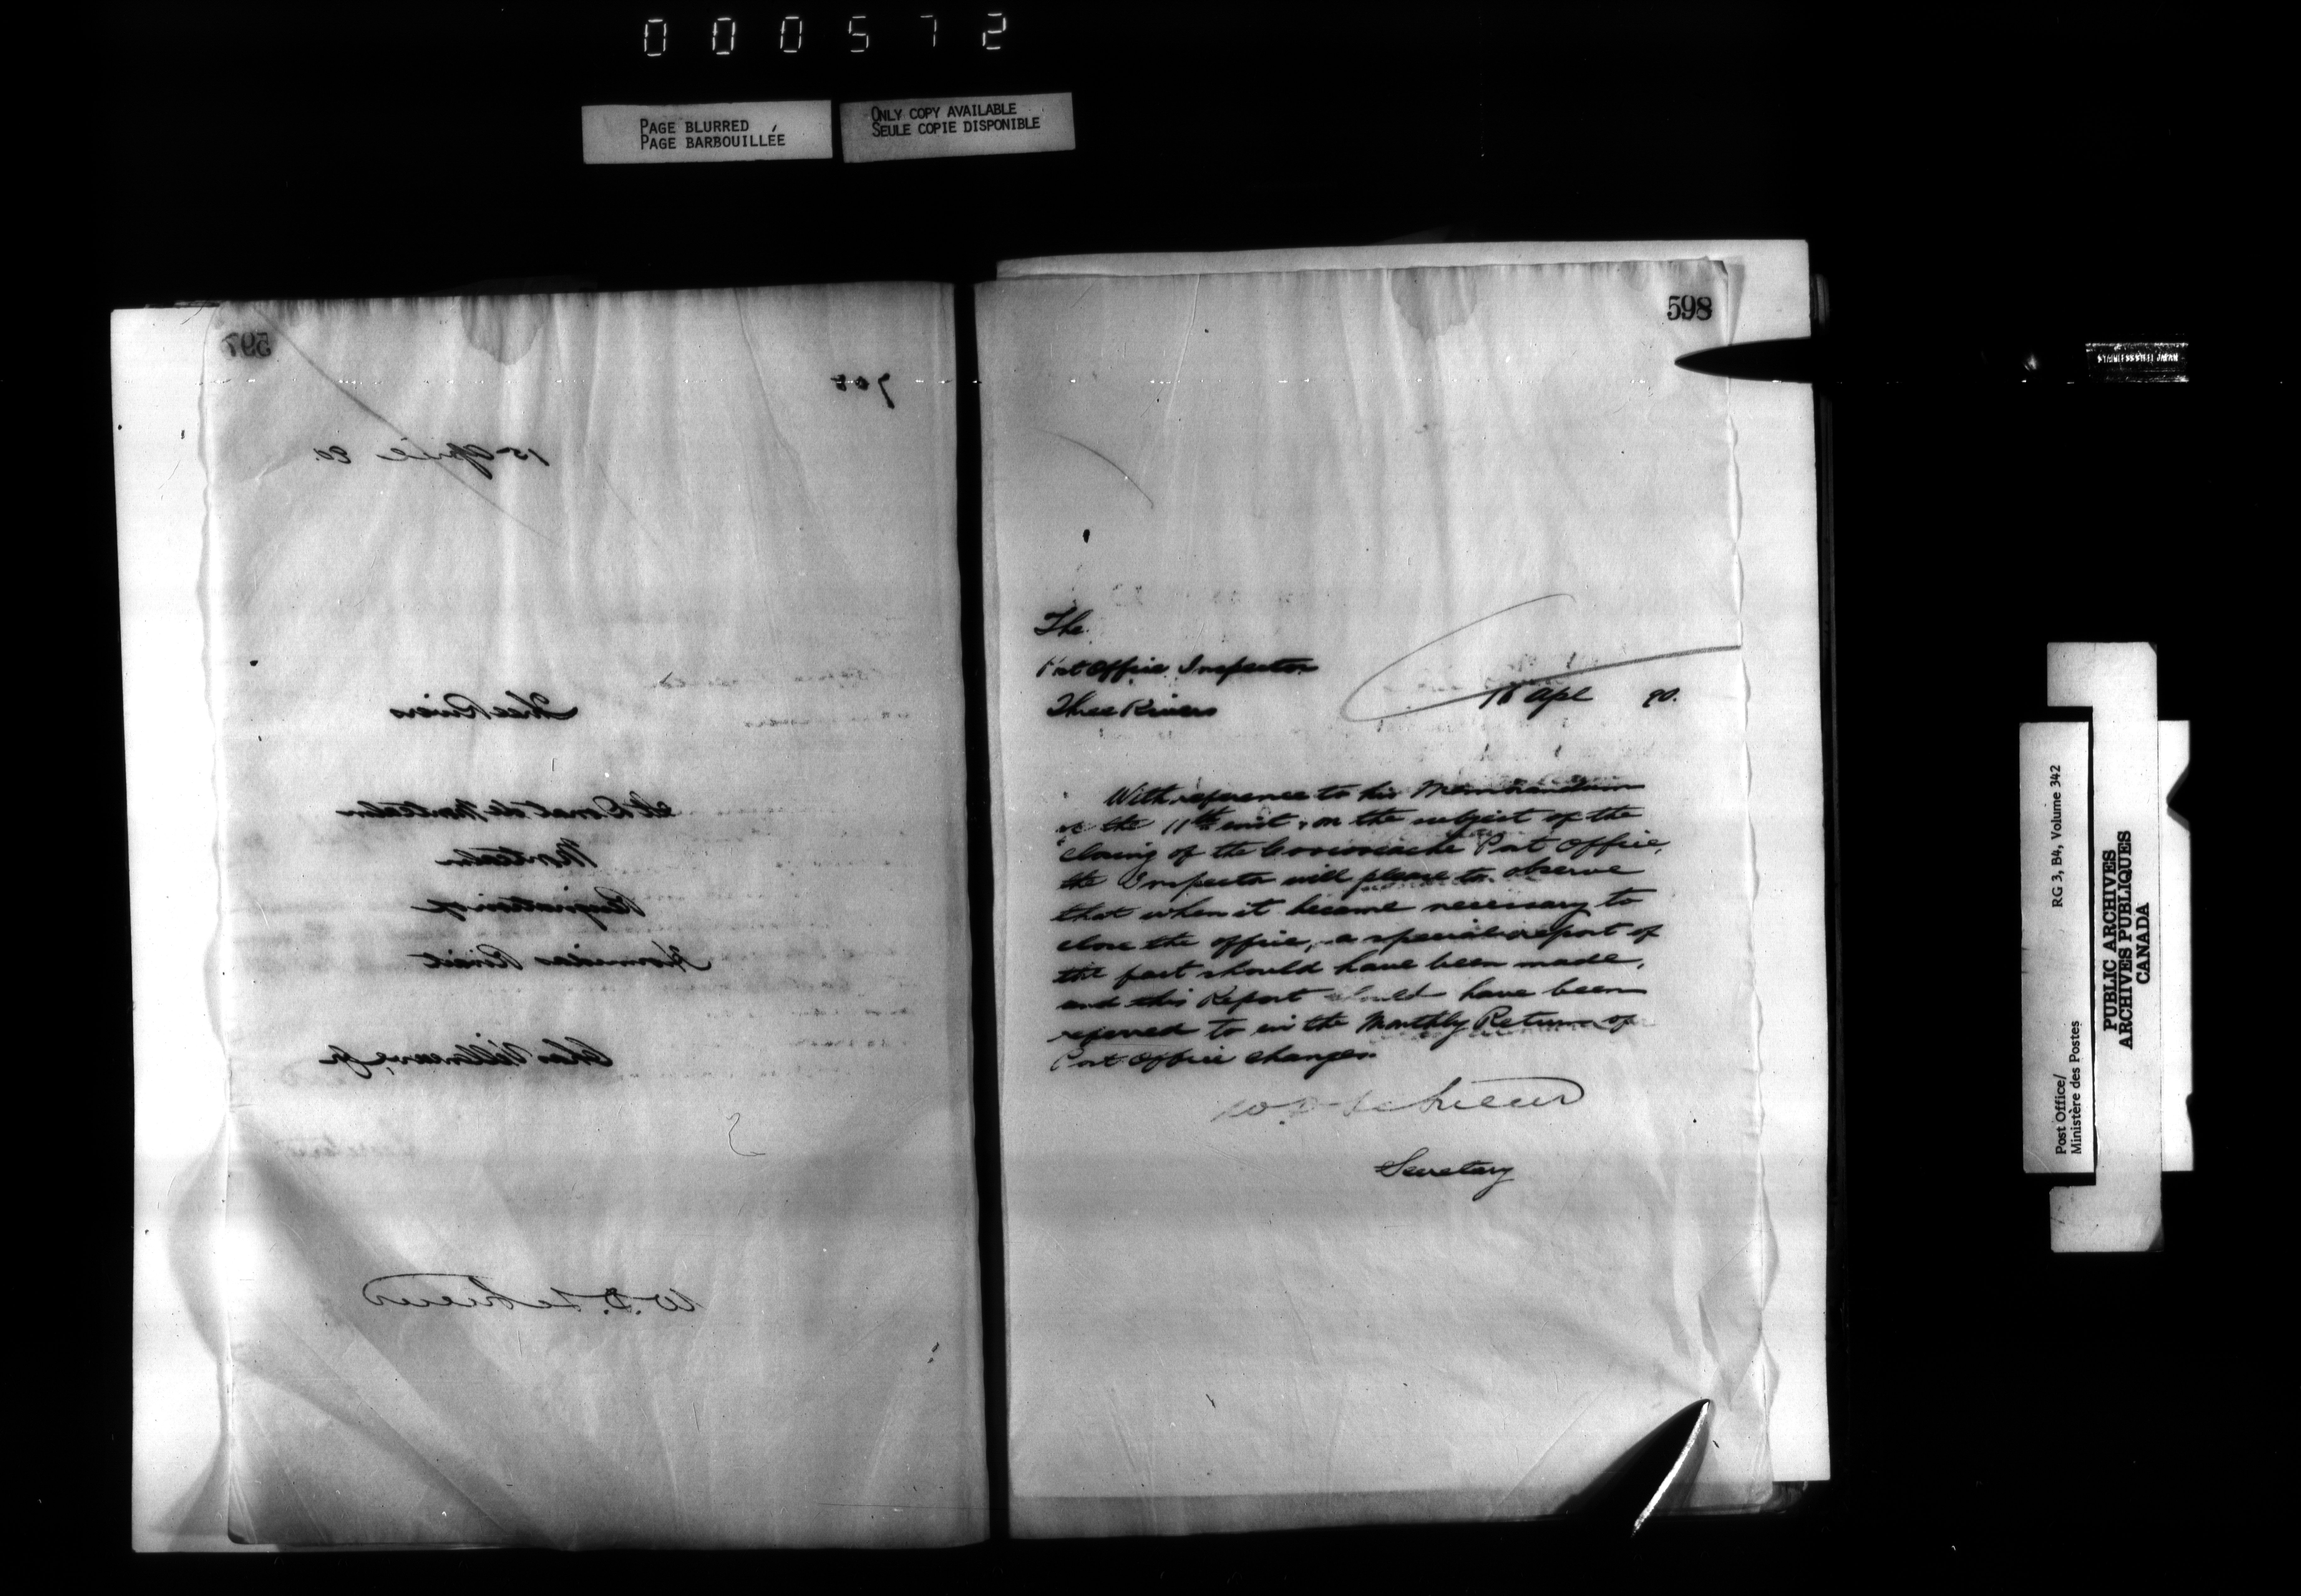 000572
PAGE BLURRED
PAGE BARBOUILLÉE
ONLY COPY AVAILABLE
SEULE COPIE DISPONIBLE
597
700
15 April 90.
Three Rivers
St Donat de Montcalm
Montcalm
Resignation of
Hormidas
Chas Villneuve, Jr
W.D. LeSueur
598
The
Post Office Inspector
Three Rivers
Apl 90.
With reference to his Memorandum
of the 11th inst, on the subject of the
closing of the Post Office,
the Inspector will please to observe
that when it became necessary to
close the office, a special report of
the fact should have been made,
and this Report should have been
referred to in the Monthly Return of
Post Office changes.
W.D. LeSueur
Secretary
Post Office/
Ministère des Postes
RG 3, B4, Volume 342
PUBLIC ARCHIVES
ARCHIVES PUBLIQUES
CANADA